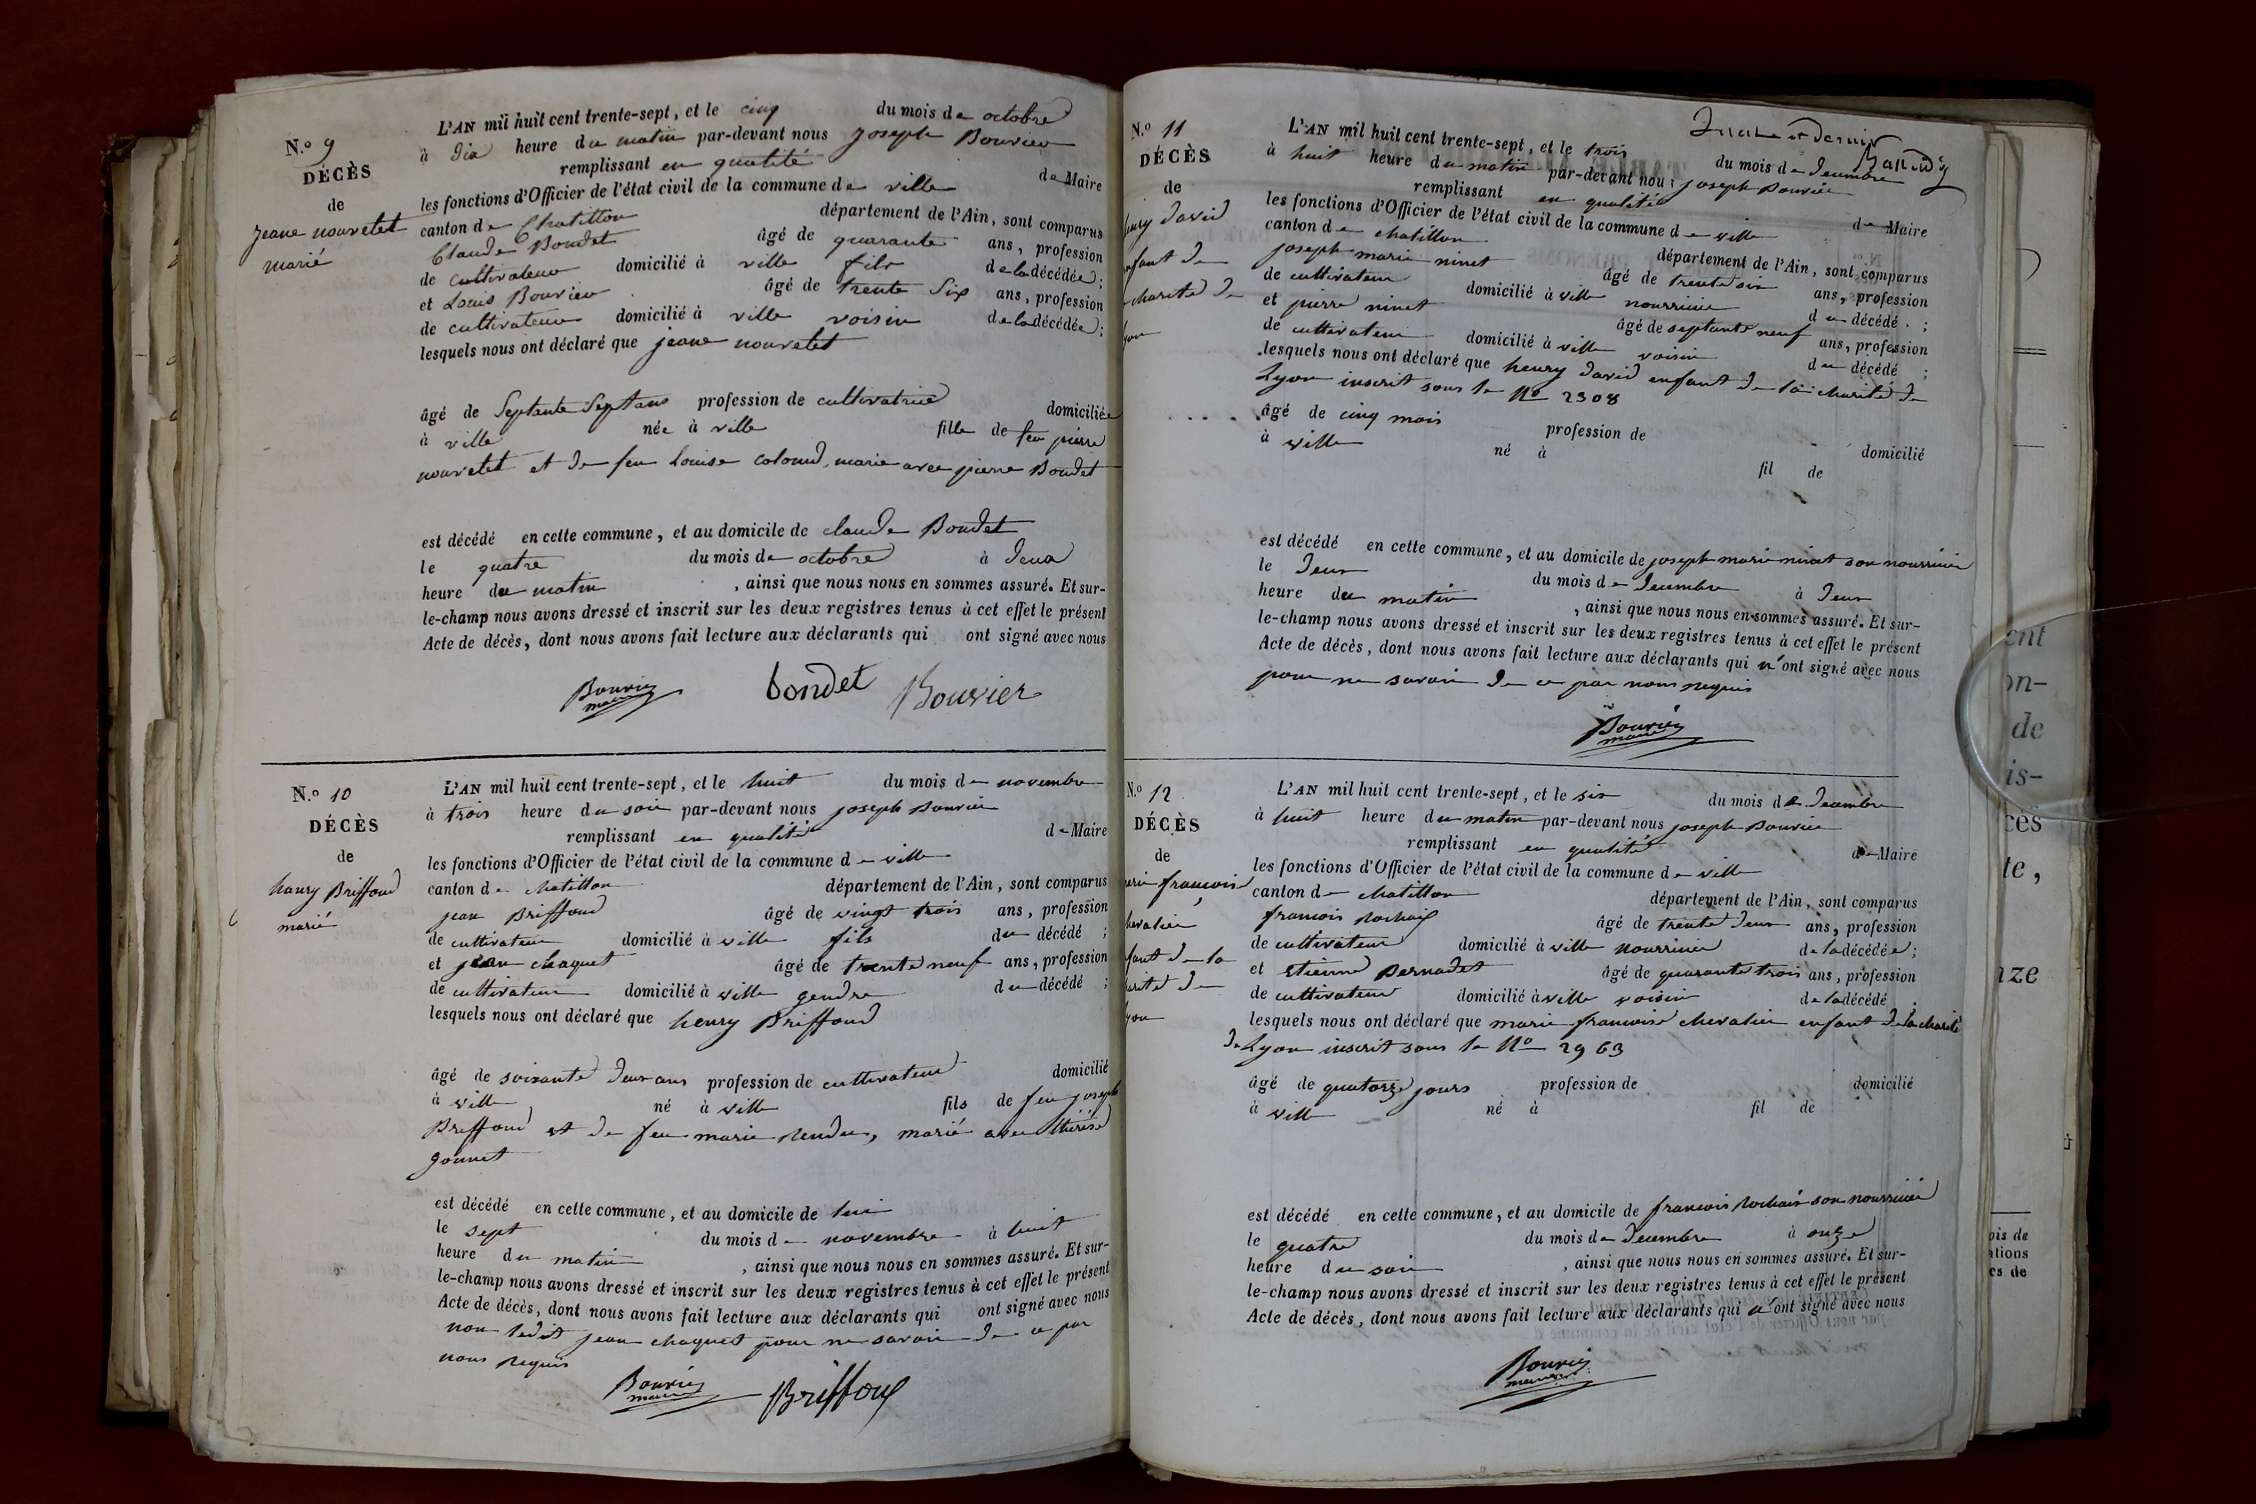 N.º 9
DÉCÈS
de
jeane nouvelet
marié
L'AN mil huit cent trente-sept, et le cinq du mois de octobre
à dix heure du matin par-devant nous joseph Bouvier
remplissant en qualité de Maire
les fonctions d'Officier de l'état civil de la commune de ville
canton de Chatillon département de l'Ain, sont comparus
Claude Boudet âgé de quarante ans, profession
de cultivateur domicilié à ville fils de la décédée;
et Louis Bouvier âgé de trente Six ans, profession
de cultivateur domicilié à ville voisin de la décédée;
lesquels nous ont déclaré que jeane nouvelet
âgé de Septente Sept ans profession de cultivatrice domiciliée
à ville née à ville fille de feu pierre
nouvelet et de feu Louise marie avec pierre Boudet
est décédé en cette commune, et au domicile de claude Boudet
le quatre du mois de octobre à deux
heure du matin , ainsi que nous nous en sommes assuré. Et sur-
le-champ nous avons dressé et inscrit sur les deux registres tenus à cet effet le présent
Acte de décès, dont nous avons fait lecture aux déclarants qui ont signé avec nous
Bouvier maire boudet Bouvier
N.º 10
DÉCÈS
de
henry Briffoud
marié
L'AN mil huit cent trente-sept, et le huit du mois de novembre
à trois heure du soir par-devant nous joseph Bouvier
remplissant en qualité de Maire
les fonctions d'Officier de l'état civil de la commune de ville
canton de chatillon département de l'Ain, sont comparus
jean Briffoud âgé de vingt trois ans, profession
de cultivateur domicilié à ville fils du décédé ;
et jean chaquet âgé de trente neuf ans, profession
de cultivateur domicilié à ville gendre du décédé ;
lesquels nous ont déclaré que henry Briffoud
âgé de soixante deux ans profession de cultivateur domicilié
à ville né à ville fils de feu joseph
Briffoud et de feu marie Rendu, marié avec thérèse
gonnet
est décédé en cette commune, et au domicile de lui
le sept du mois de novembre à huit
heure du matin , ainsi que nous nous en sommes assuré. Et sur-
le-champ nous avons dressé et inscrit sur les deux registres tenus à cet effet le présent
Acte de décès, dont nous avons fait lecture aux déclarants qui ont signé avec nous
non ledit jean chaquet pour ne savoir de ce par
nous requis
Bouvier maire Briffoud
N.º 11
DÉCÈS
de
david
enfant de
charité de
L'AN mil huit cent trente-sept, et le trois du mois de decembre
à huit heure du matin par-devant nous joseph Bouvier
remplissant en qualité de Maire
les fonctions d'Officier de l'état civil de la commune de ville
canton de chatillon département de l'Ain, sont comparus
joseph marie ninet âgé de trente six ans, profession
de cultivateur domicilié à ville nourricier du décédé ;
et pierre ninet âgé de septante neuf ans, profession
de cultivateur domicilié à ville voisin du décédé ;
lesquels nous ont déclaré que henry david enfant de la charité de
Lyon inscrit sous le No 2308
âgé de cinq mois profession de domicilié
à ville né à fil de
est décédé en cette commune, et au domicile de joseph marie ninet son nourricier
le deux du mois de decembre à deux
heure du matin , ainsi que nous nous en sommes assuré. Et sur-
le-champ nous avons dressé et inscrit sur les deux registres tenus à cet effet le présent
Acte de décès, dont nous avons fait lecture aux déclarants qui n'ont signé avec nous
pour ne savoir de ce par nous requis
Bouvier maire
N.º 12
DÉCÈS
de
françois
chevalier
L'AN mil huit cent trente-sept, et le six du mois de decembre
à huit heure du matin par-devant nous joseph Bouvier
remplissant en qualité de Maire
les fonctions d'Officier de l'état civil de la commune de ville
canton de chatillon département de l'Ain, sont comparus
francois Rochaix âgé de trente deux ans, profession
de cultivateur domicilié à ville nourricier de la décédée;
et etienne Bernadet âgé de quarante trois ans, profession
de cultivateur domicilié à ville voisin de la décédé
lesquels nous ont déclaré que marie francoise chevalier enfant de la charité
de Lyon inscrit sous le No 2963
âgé de quatorze jours profession de domicilié
à ville né à fil de
est décédé en cette commune, et au domicile de francois Rochaix son nourricier
le quatre du mois de decembre à onze
heure du soir , ainsi que nous nous en sommes assuré. Et sur-
le-champ nous avons dressé et inscrit sur les deux registres tenus à cet effet le présent
Acte de décès, dont nous avons fait lecture aux déclarants qui n'ont signé avec nous
Bouvier maire